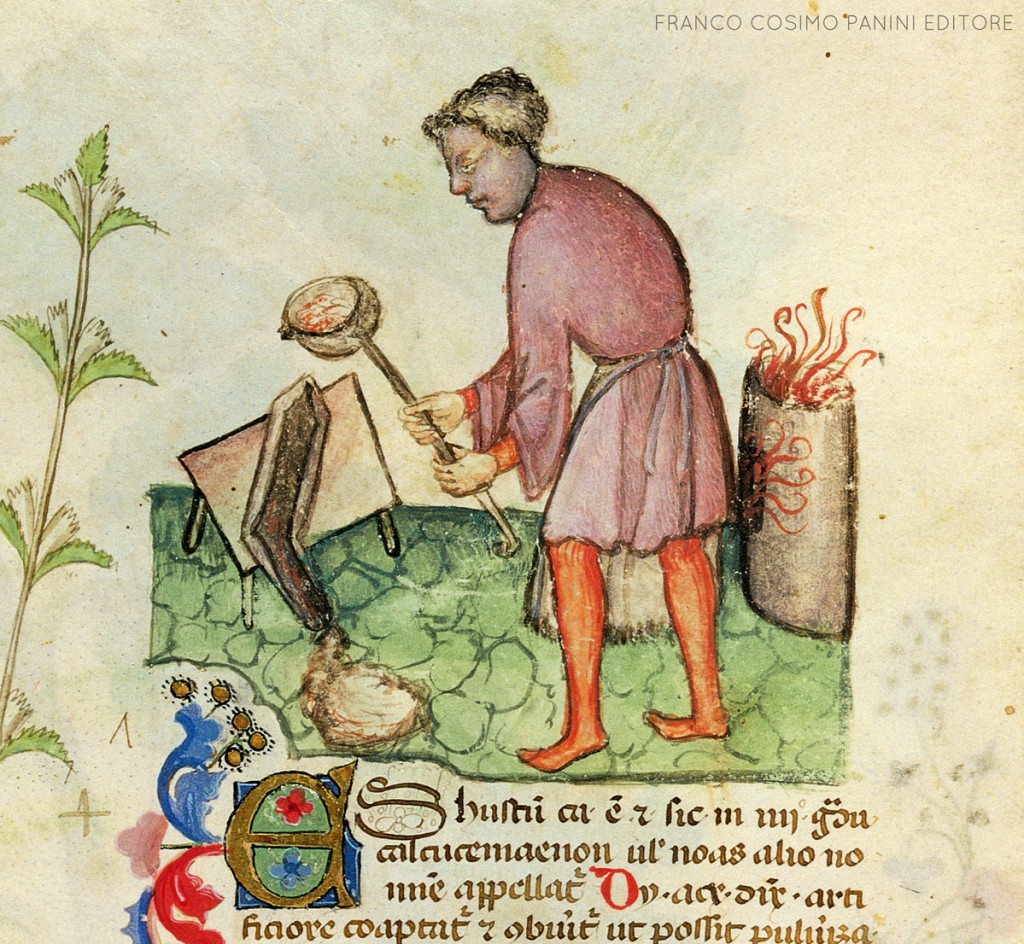 FRANCO COSIMO PANINI EDITORE
ES hustū ca. ē ⁊ sic. in iiij. g̃du
calcucemaenon ul̃ noas alio no
mīe appellat᷑ Dy. ace. dix̃. arti
ficiore coaptat᷑ ⁊ ꝯbuit᷑ ut possit puluiza